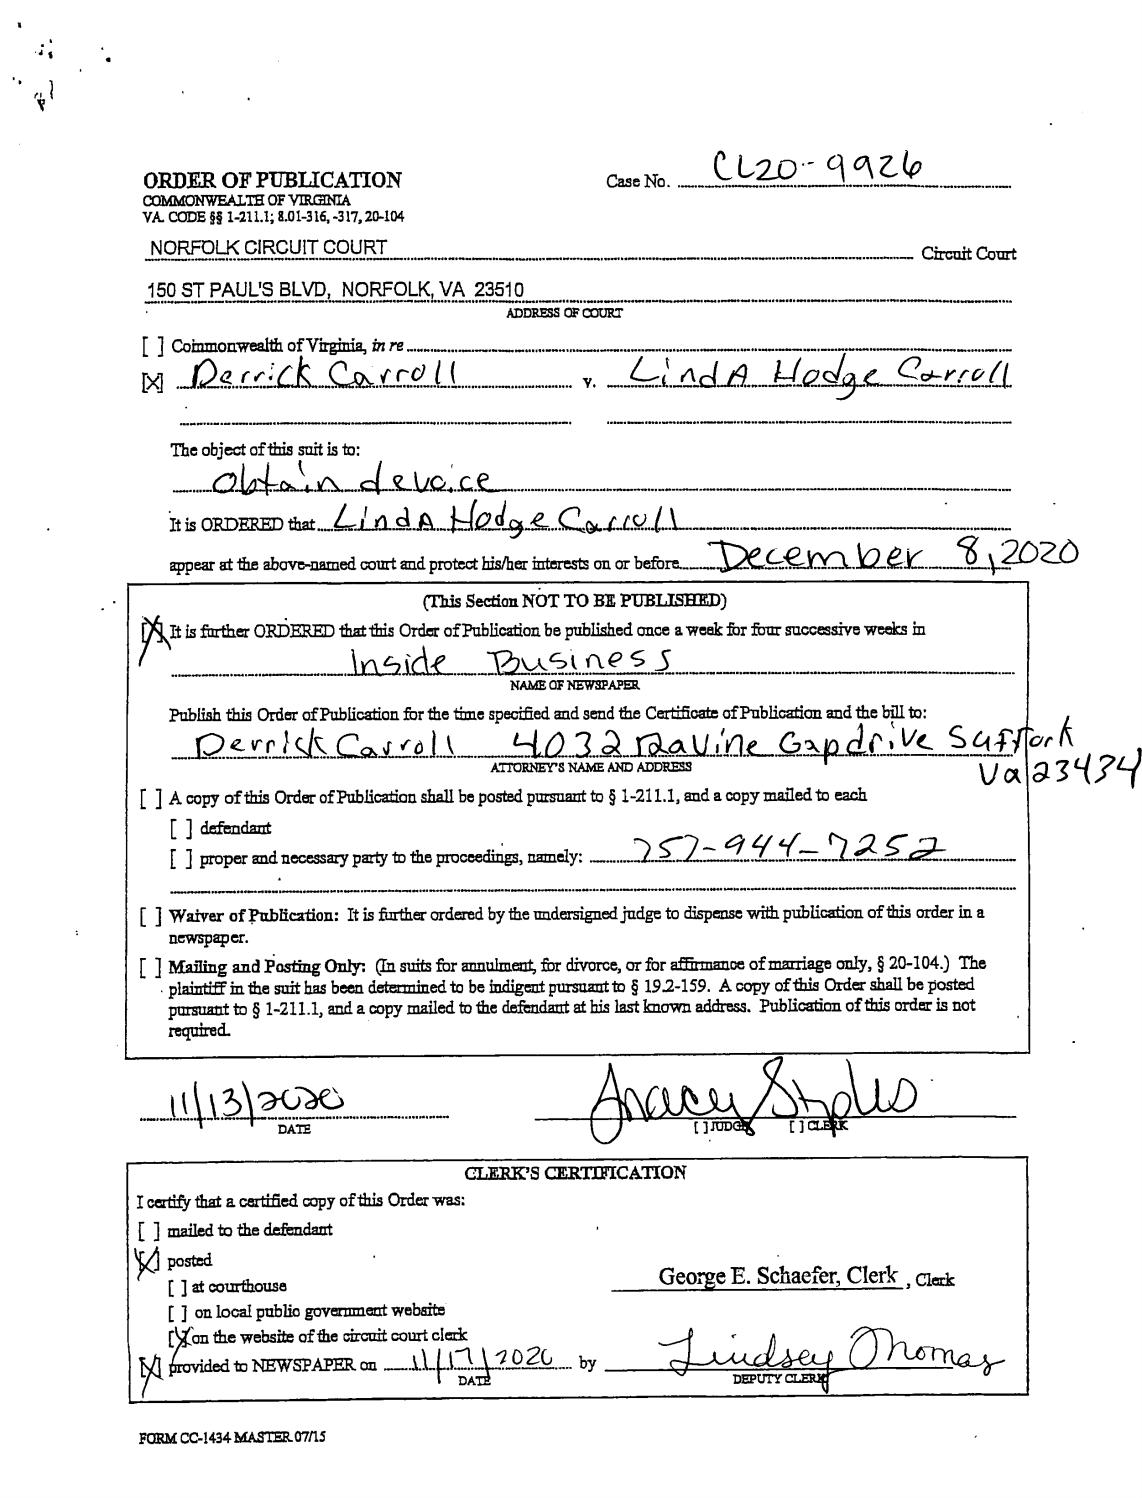 ORDER OF PUBLICATION
Case No. CL20-9926
COMMONWEALTH OF VIRGINIA
VA. CODE §§ 1-211.1; 8.01-316, -317, 20-104
NORFOLK CIRCUIT COURT Circuit Court
150 ST PAUL'S BLVD, NORFOLK, VA 23510
ADDRESS OF COURT
[ ] Commonwealth of Virginia, in re
[X] Derrick Carroll v. LindA Hodge Carroll
The object of this suit is to:
obtain devoice
It is ORDERED that LindA Hodge Carroll
appear at the above-named court and protect his/her interests on or before December 8, 2020
(This Section NOT TO BE PUBLISHED)
[X] It is further ORDERED that this Order of Publication be published once a week for four successive weeks in
Inside Business
NAME OF NEWSPAPER
Publish this Order of Publication for the time specified and send the Certificate of Publication and the bill to:
Derrick Carroll 4032 Ravine Gap drive Suffork
Va 23434
ATTORNEY'S NAME AND ADDRESS
[ ] A copy of this Order of Publication shall be posted pursuant to § 1-211.1, and a copy mailed to each
[ ] defendant
[ ] proper and necessary party to the proceedings, namely: 757-944-7252
[ ] Waiver of Publication: It is further ordered by the undersigned judge to dispense with publication of this order in a
newspaper.
[ ] Mailing and Posting Only: (In suits for annulment, for divorce, or for affirmance of marriage only, § 20-104.) The
plaintiff in the suit has been determined to be indigent pursuant to § 19.2-159. A copy of this Order shall be posted
pursuant to § 1-211.1, and a copy mailed to the defendant at his last known address. Publication of this order is not
required.
11/13/2020 Tracey
DATE [ ] JUDGE [ ] CLERK
CLERK'S CERTIFICATION
I certify that a certified copy of this Order was:
[ ] mailed to the defendant
[X] posted
[ ] at courthouse
George E. Schaefer, Clerk, Clerk
[ ] on local public government website
[X] on the website of the circuit court clerk
[X] provided to NEWSPAPER on 11/17/2020 by Lindsey Thomas
DATE DEPUTY CLERK
FORM CC-1434 MASTER 07/15